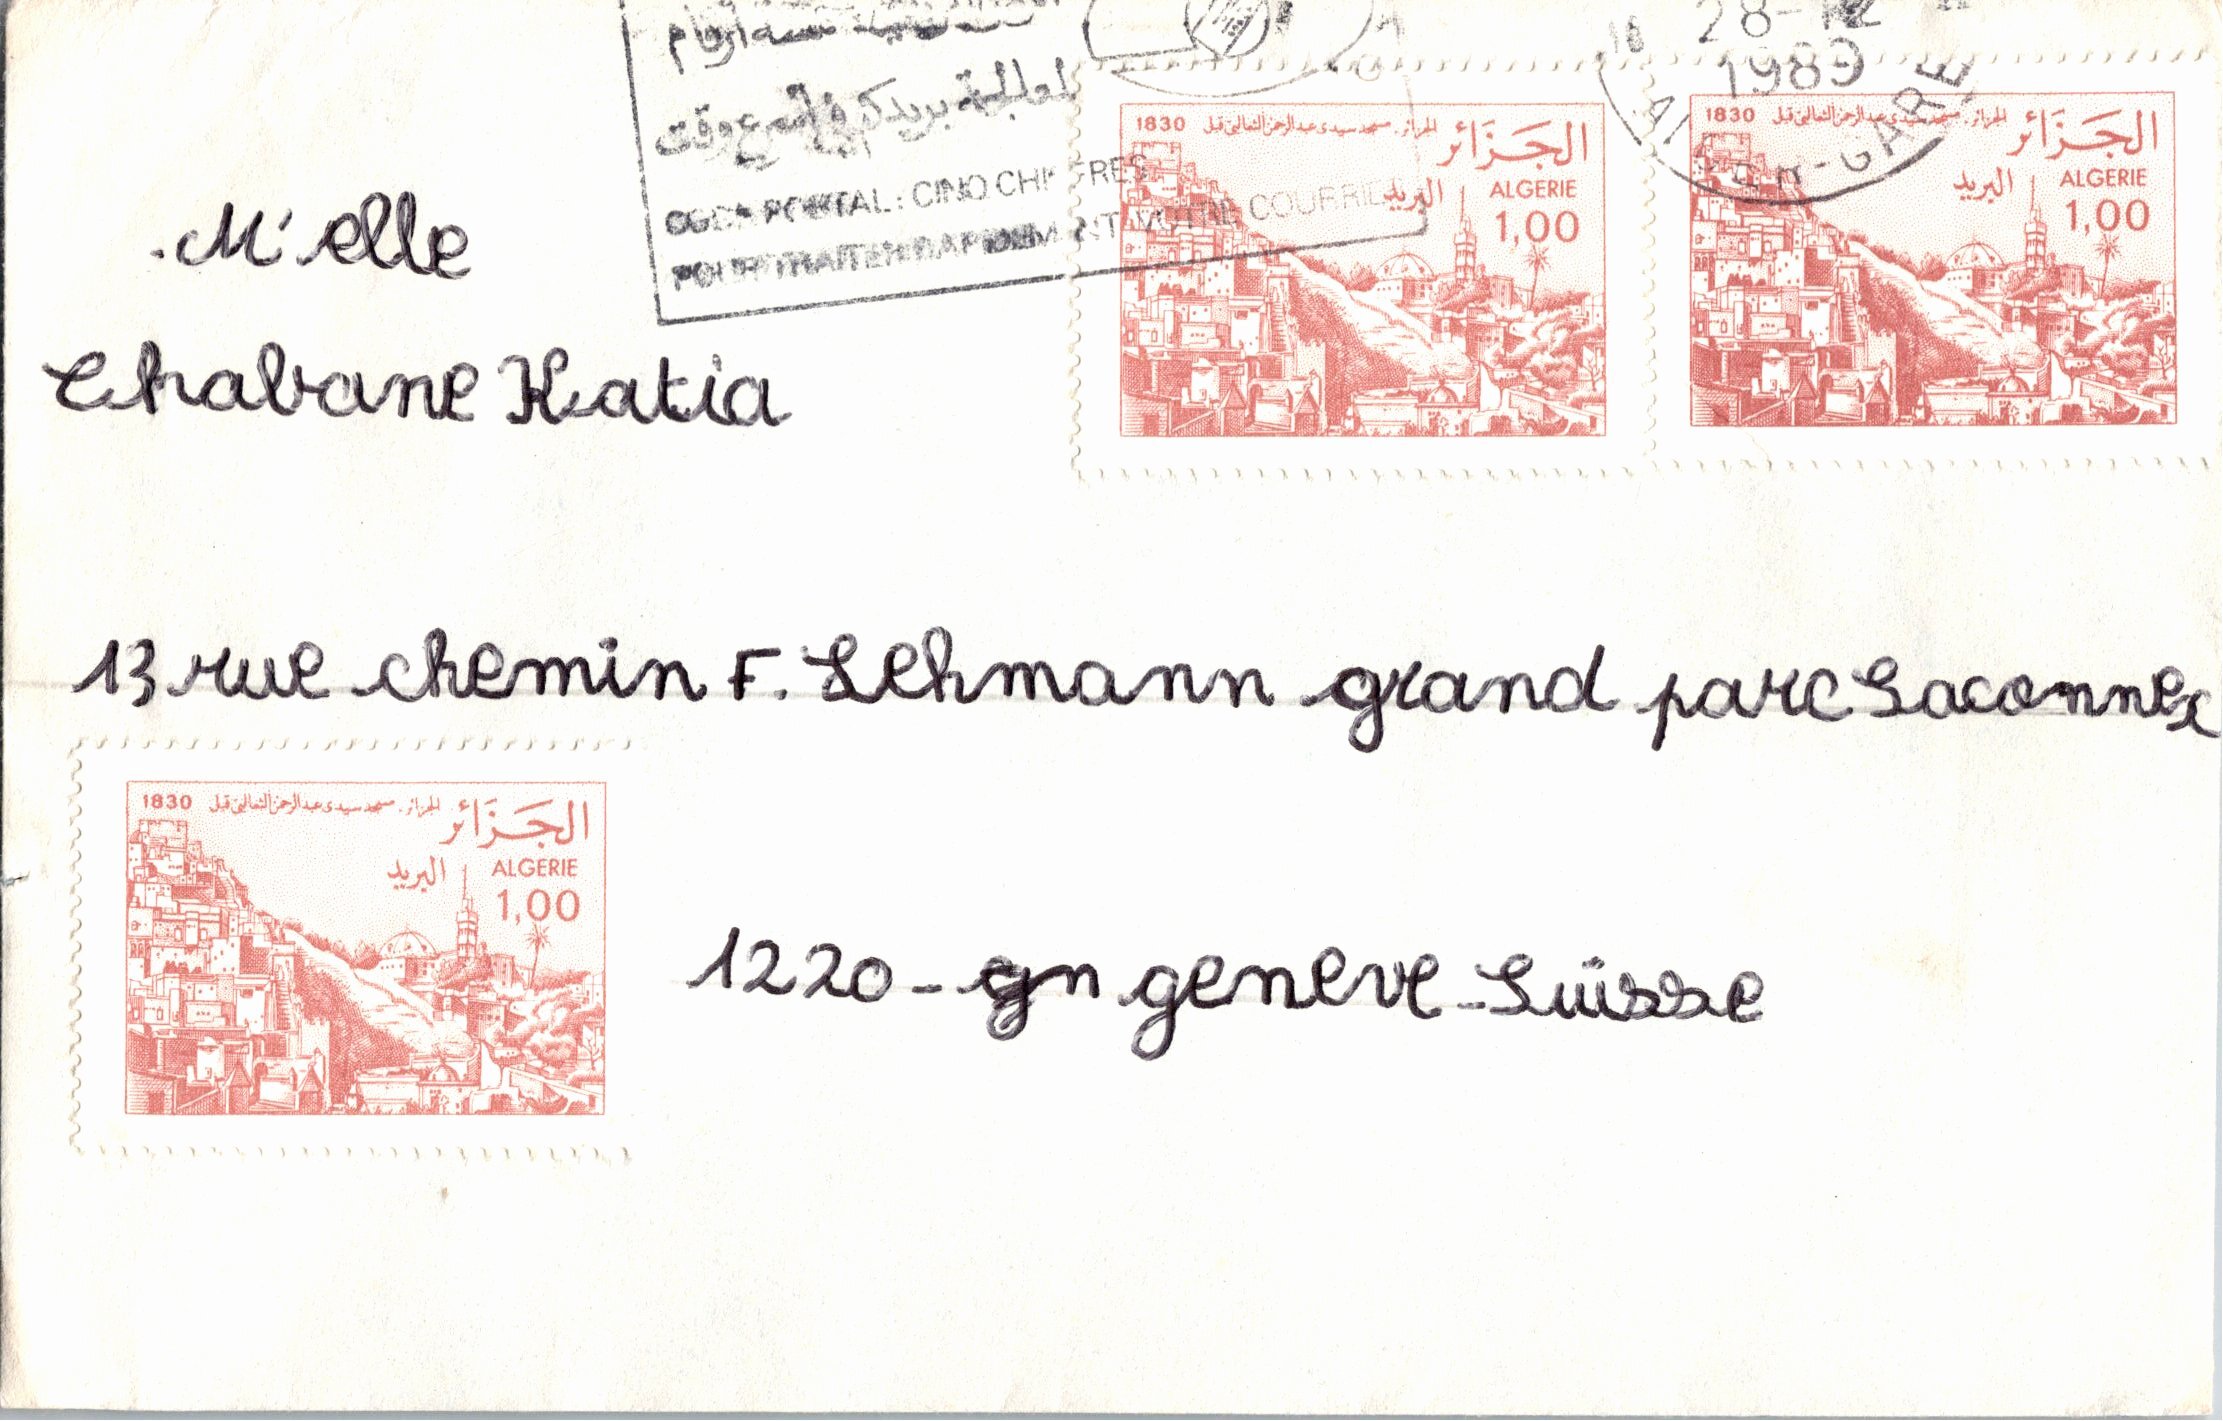 لمعالجة بريدكم في أسرع وقت
CODE POSTAL: CINQ CHIFFRES
POUR TRAITER RAPIDEMENT VOTRE COURRIER
28-12
1989
ALGER-GARE
الجزائر. مسجد سيدي عبد الرحمن الثعالبي قبل 1830
الجزائر
البريد
ALGERIE
1,00
الجزائر. مسجد سيدي عبد الرحمن الثعالبي قبل 1830
الجزائر
البريد
ALGERIE
1,00
M'elle
Chabane Katia
13 rue chemin F. Lehmann grand parc Saconnex
الجزائر. مسجد سيدي عبد الرحمن الثعالبي قبل 1830
الجزائر
البريد
ALGERIE
1,00
1220 - gn geneve - Suisse